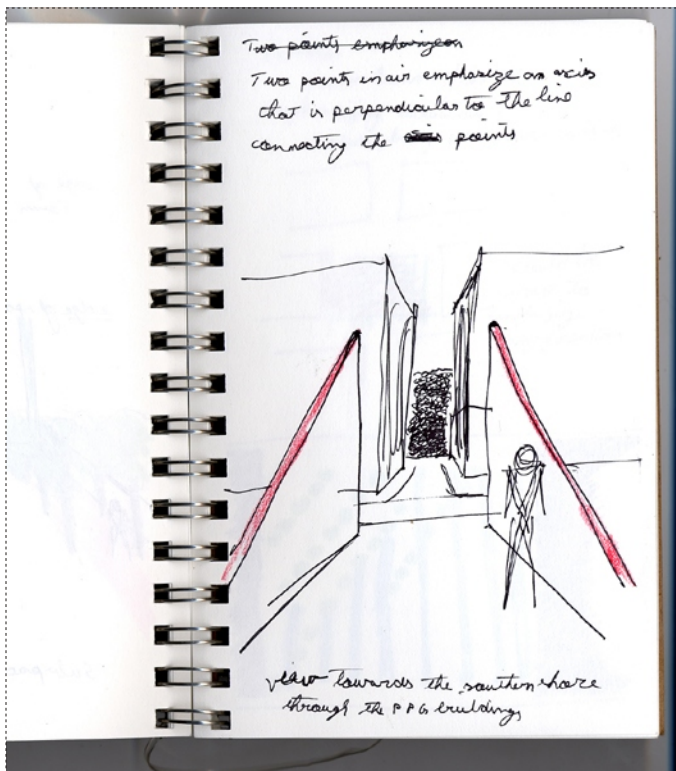 Two points emphasize on
Two points in air emphasize an axis
that is perpendicular to the line
connecting the points
view towards the southern shore
through the PPG buildings